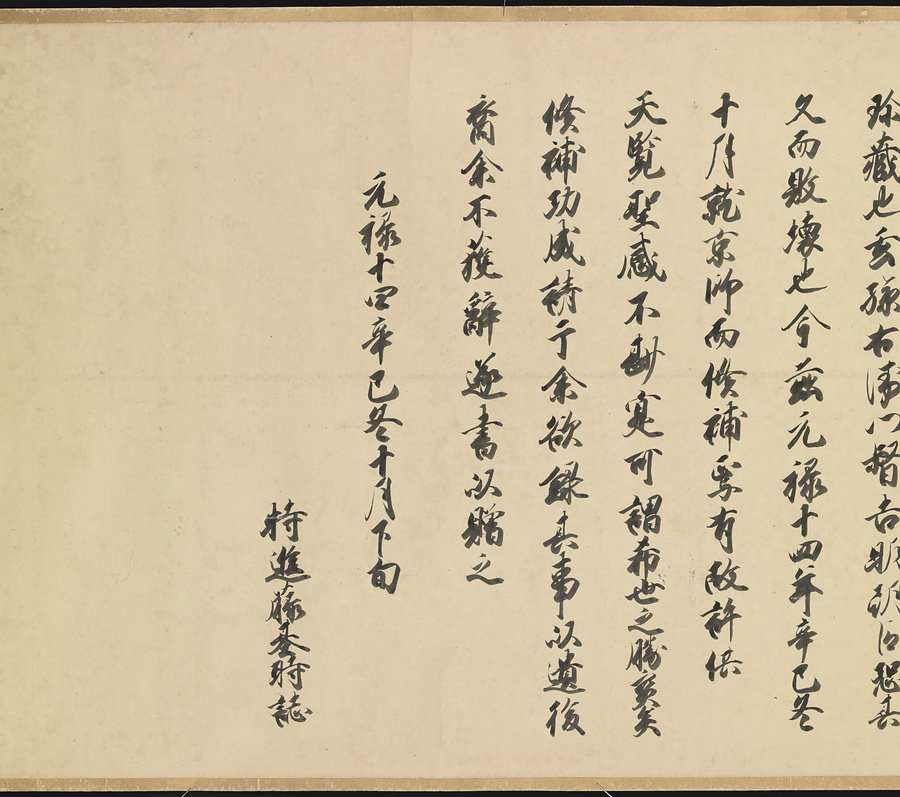 珎藏也玄孫右衛門督吉明朝臣恐其
久而敗壊也今茲元禄十四年辛巳冬
十月就京師而修補焉有故許供
天覧聖感不尠寔可謂希世之勝寳矣
修補功成請于余欲録其事以遺後
裔余不獲辭遂書以贈之
元禄十四辛巳冬十月下旬
特進藤基時誌